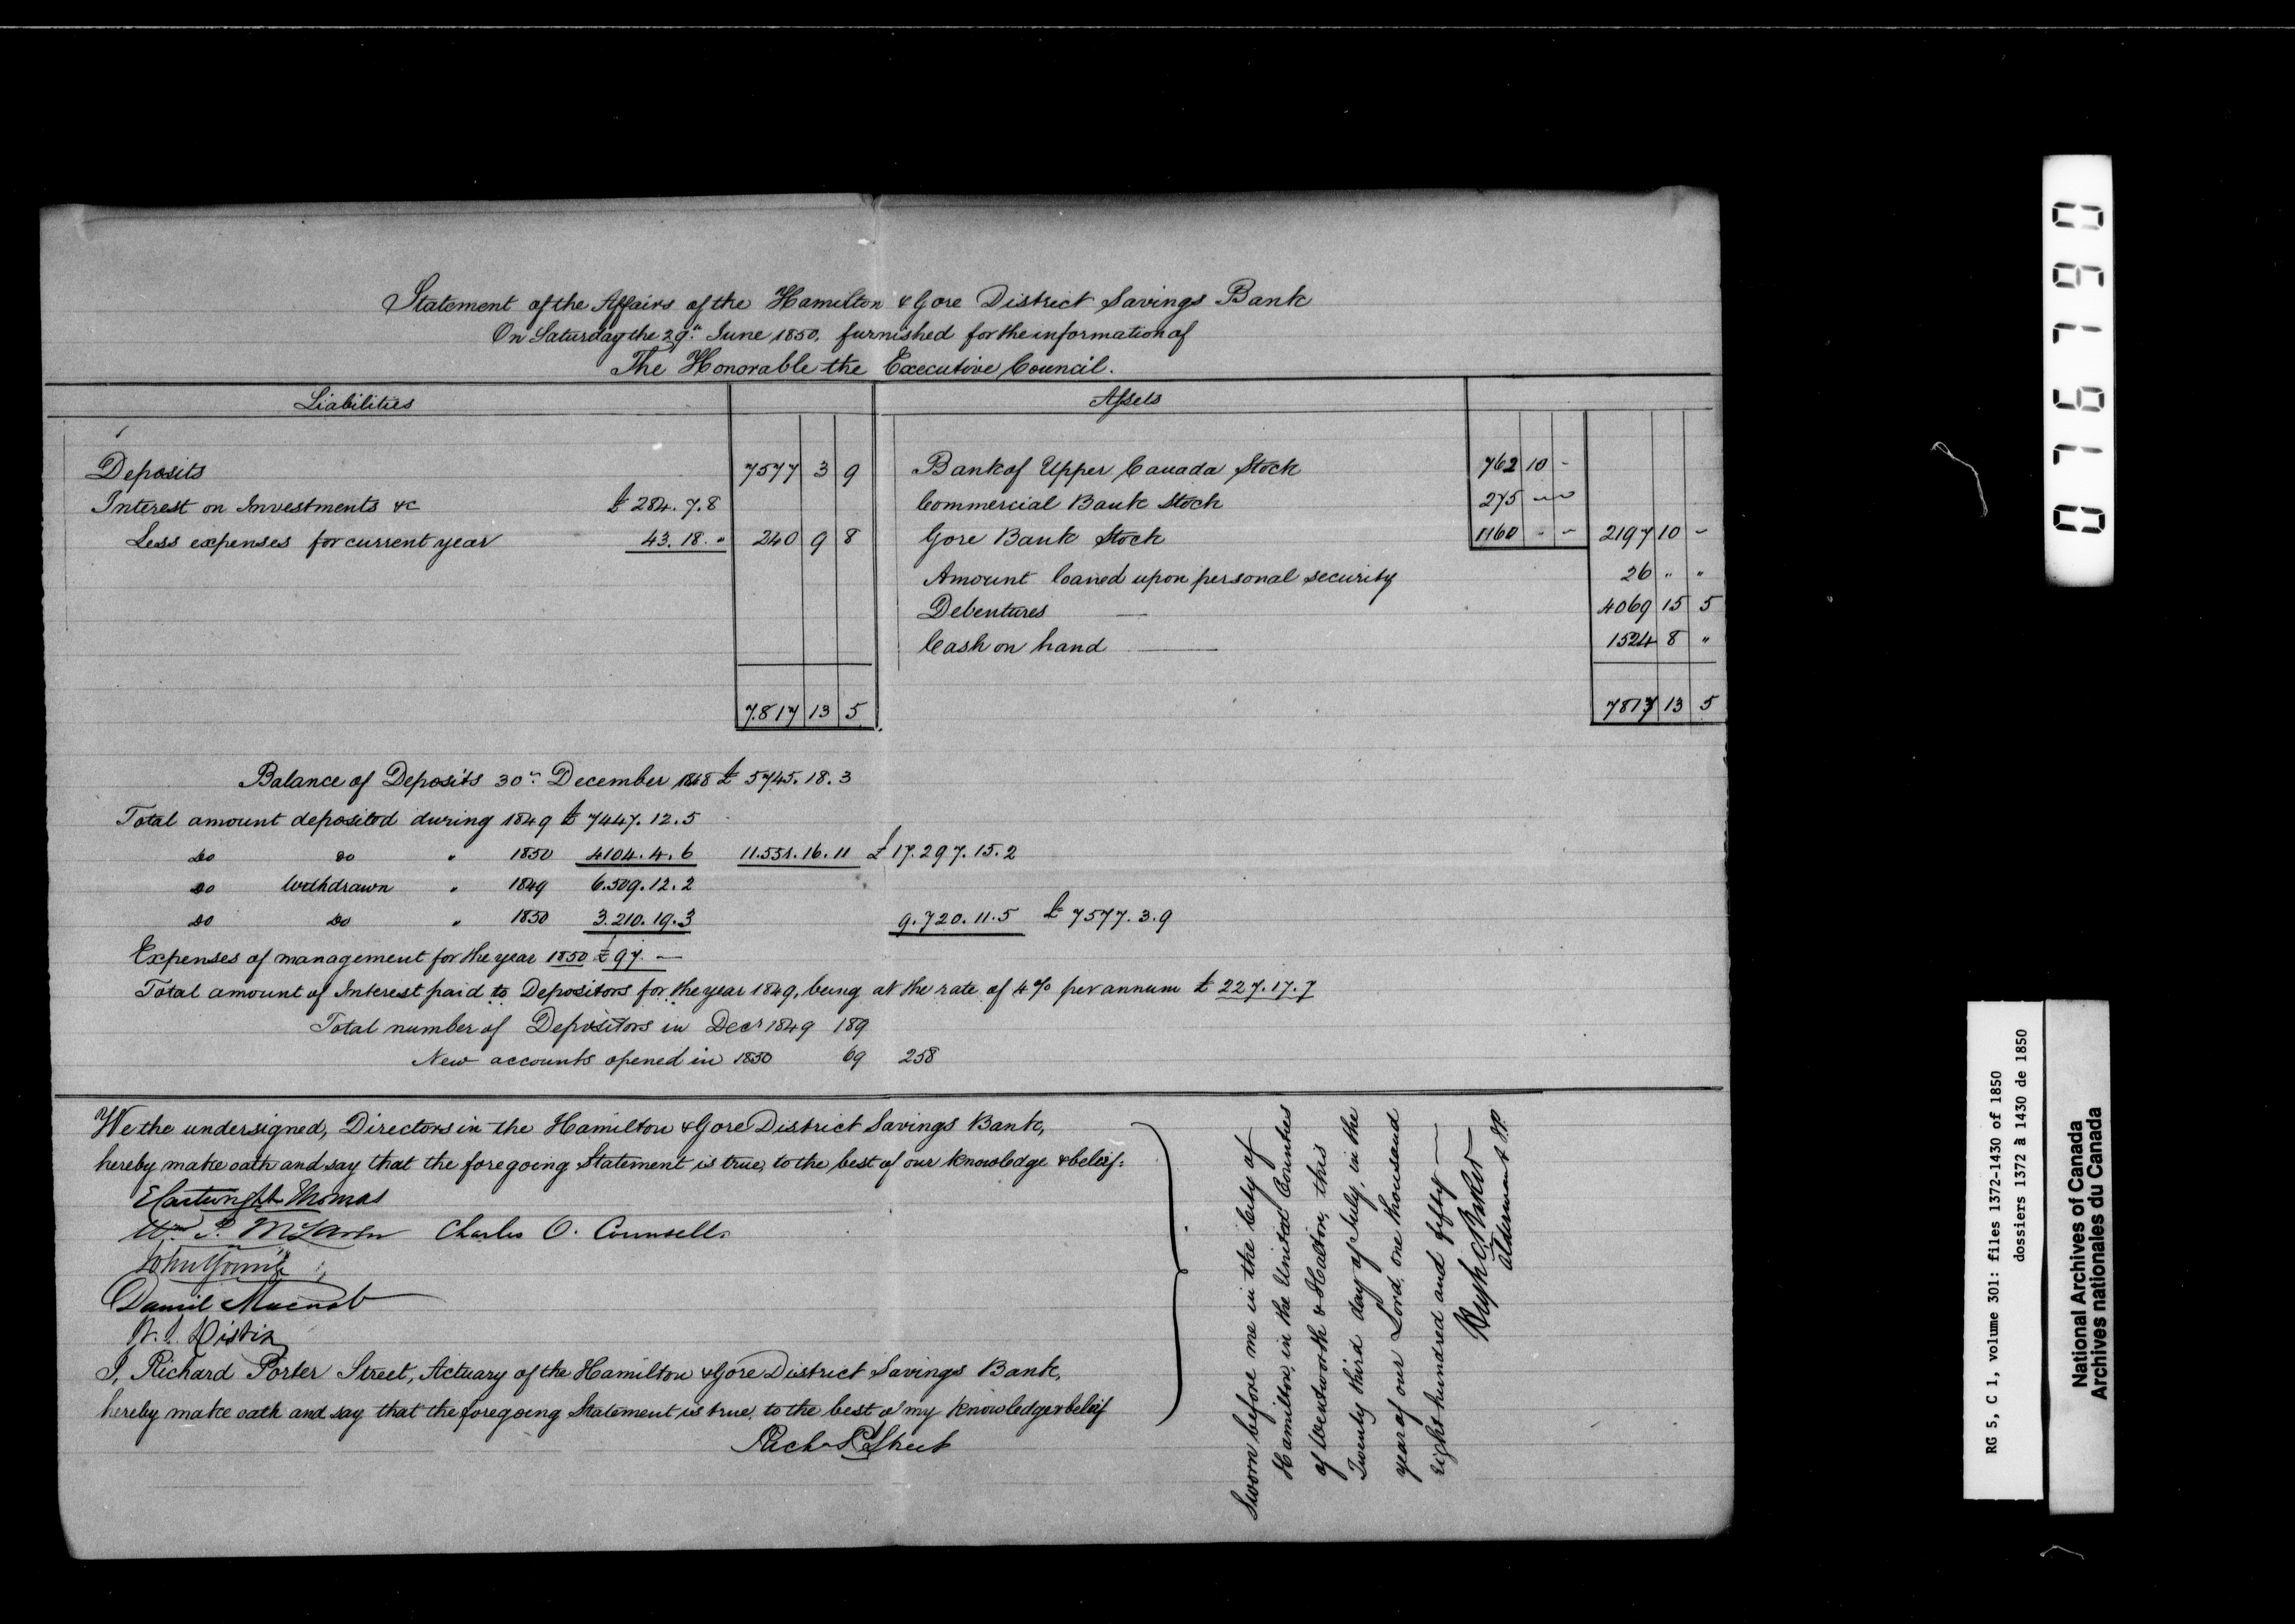 Statement of the Affairs of the Hamilton & Gore District Savings Bank
On Saturday the 29th June 1850, furnished for the information of
The Honorable the Executive Council.
Liabilities
Deposits 7577 3 9
Interest on Investments &c £ 284. 7. 8
Less expenses for current year 43. 18. " 240 9 8
7.817 13 5
Assets
Bank of Upper Canada Stock 762 10 -
Commercial Bank Stock 275 - -
Gore Bank Stock 1160 - - 2197 10 -
Amount loaned upon personal security 26 " "
Debentures 4069 15 5
Cash on hand 1524 8 "
7817 13 5
Balance of Deposits 30th December 1848 £ 5745. 18. 3
Total amount deposited during 1849 £ 7447. 12. 5
Do Do " 1850 4104. 4. 6 11.551. 16. 11 £ 17.297. 15. 2
Do Withdrawn " 1849 6.509. 12. 2
Do Do " 1850 3.210. 19. 3 9.720. 11. 5 £ 7577. 3. 9
Expenses of management for the year 1850 £ 97. —
Total amount of Interest paid to Depositors for the year 1849, being at the rate of 4 % per annum £ 227. 17. 7
Total number of Depositors in Decr 1849 189
New accounts opened in 1850 69 258
We the undersigned, Directors in the Hamilton & Gore District Savings Bank,
hereby make oath and say that the foregoing Statement is true, to the best of our knowledge & belief:
E Cartwright Thomas
Wm P. McLaren Charles O. Counsell.
John Young
Daniel Macnab
W. L. Distin
I, Richard Porter Street, Actuary of the Hamilton & Gore District Savings Bank,
hereby make oath and say that the foregoing Statement is true, to the best of my knowledge & belief
Rich P Street
Sworn before me in the City of
Hamilton, in the United Counties
of Wentworth & Halton, this
Twenty third day of July, in the
year of our Lord, one thousand
eight hundred and fifty —
Hugh C. Baker
Alderman &
076790
RG 5, C 1, volume 301: files 1372-1430 of 1850
dossiers 1372 à 1430 de 1850
National Archives of Canada
Archives nationales du Canada